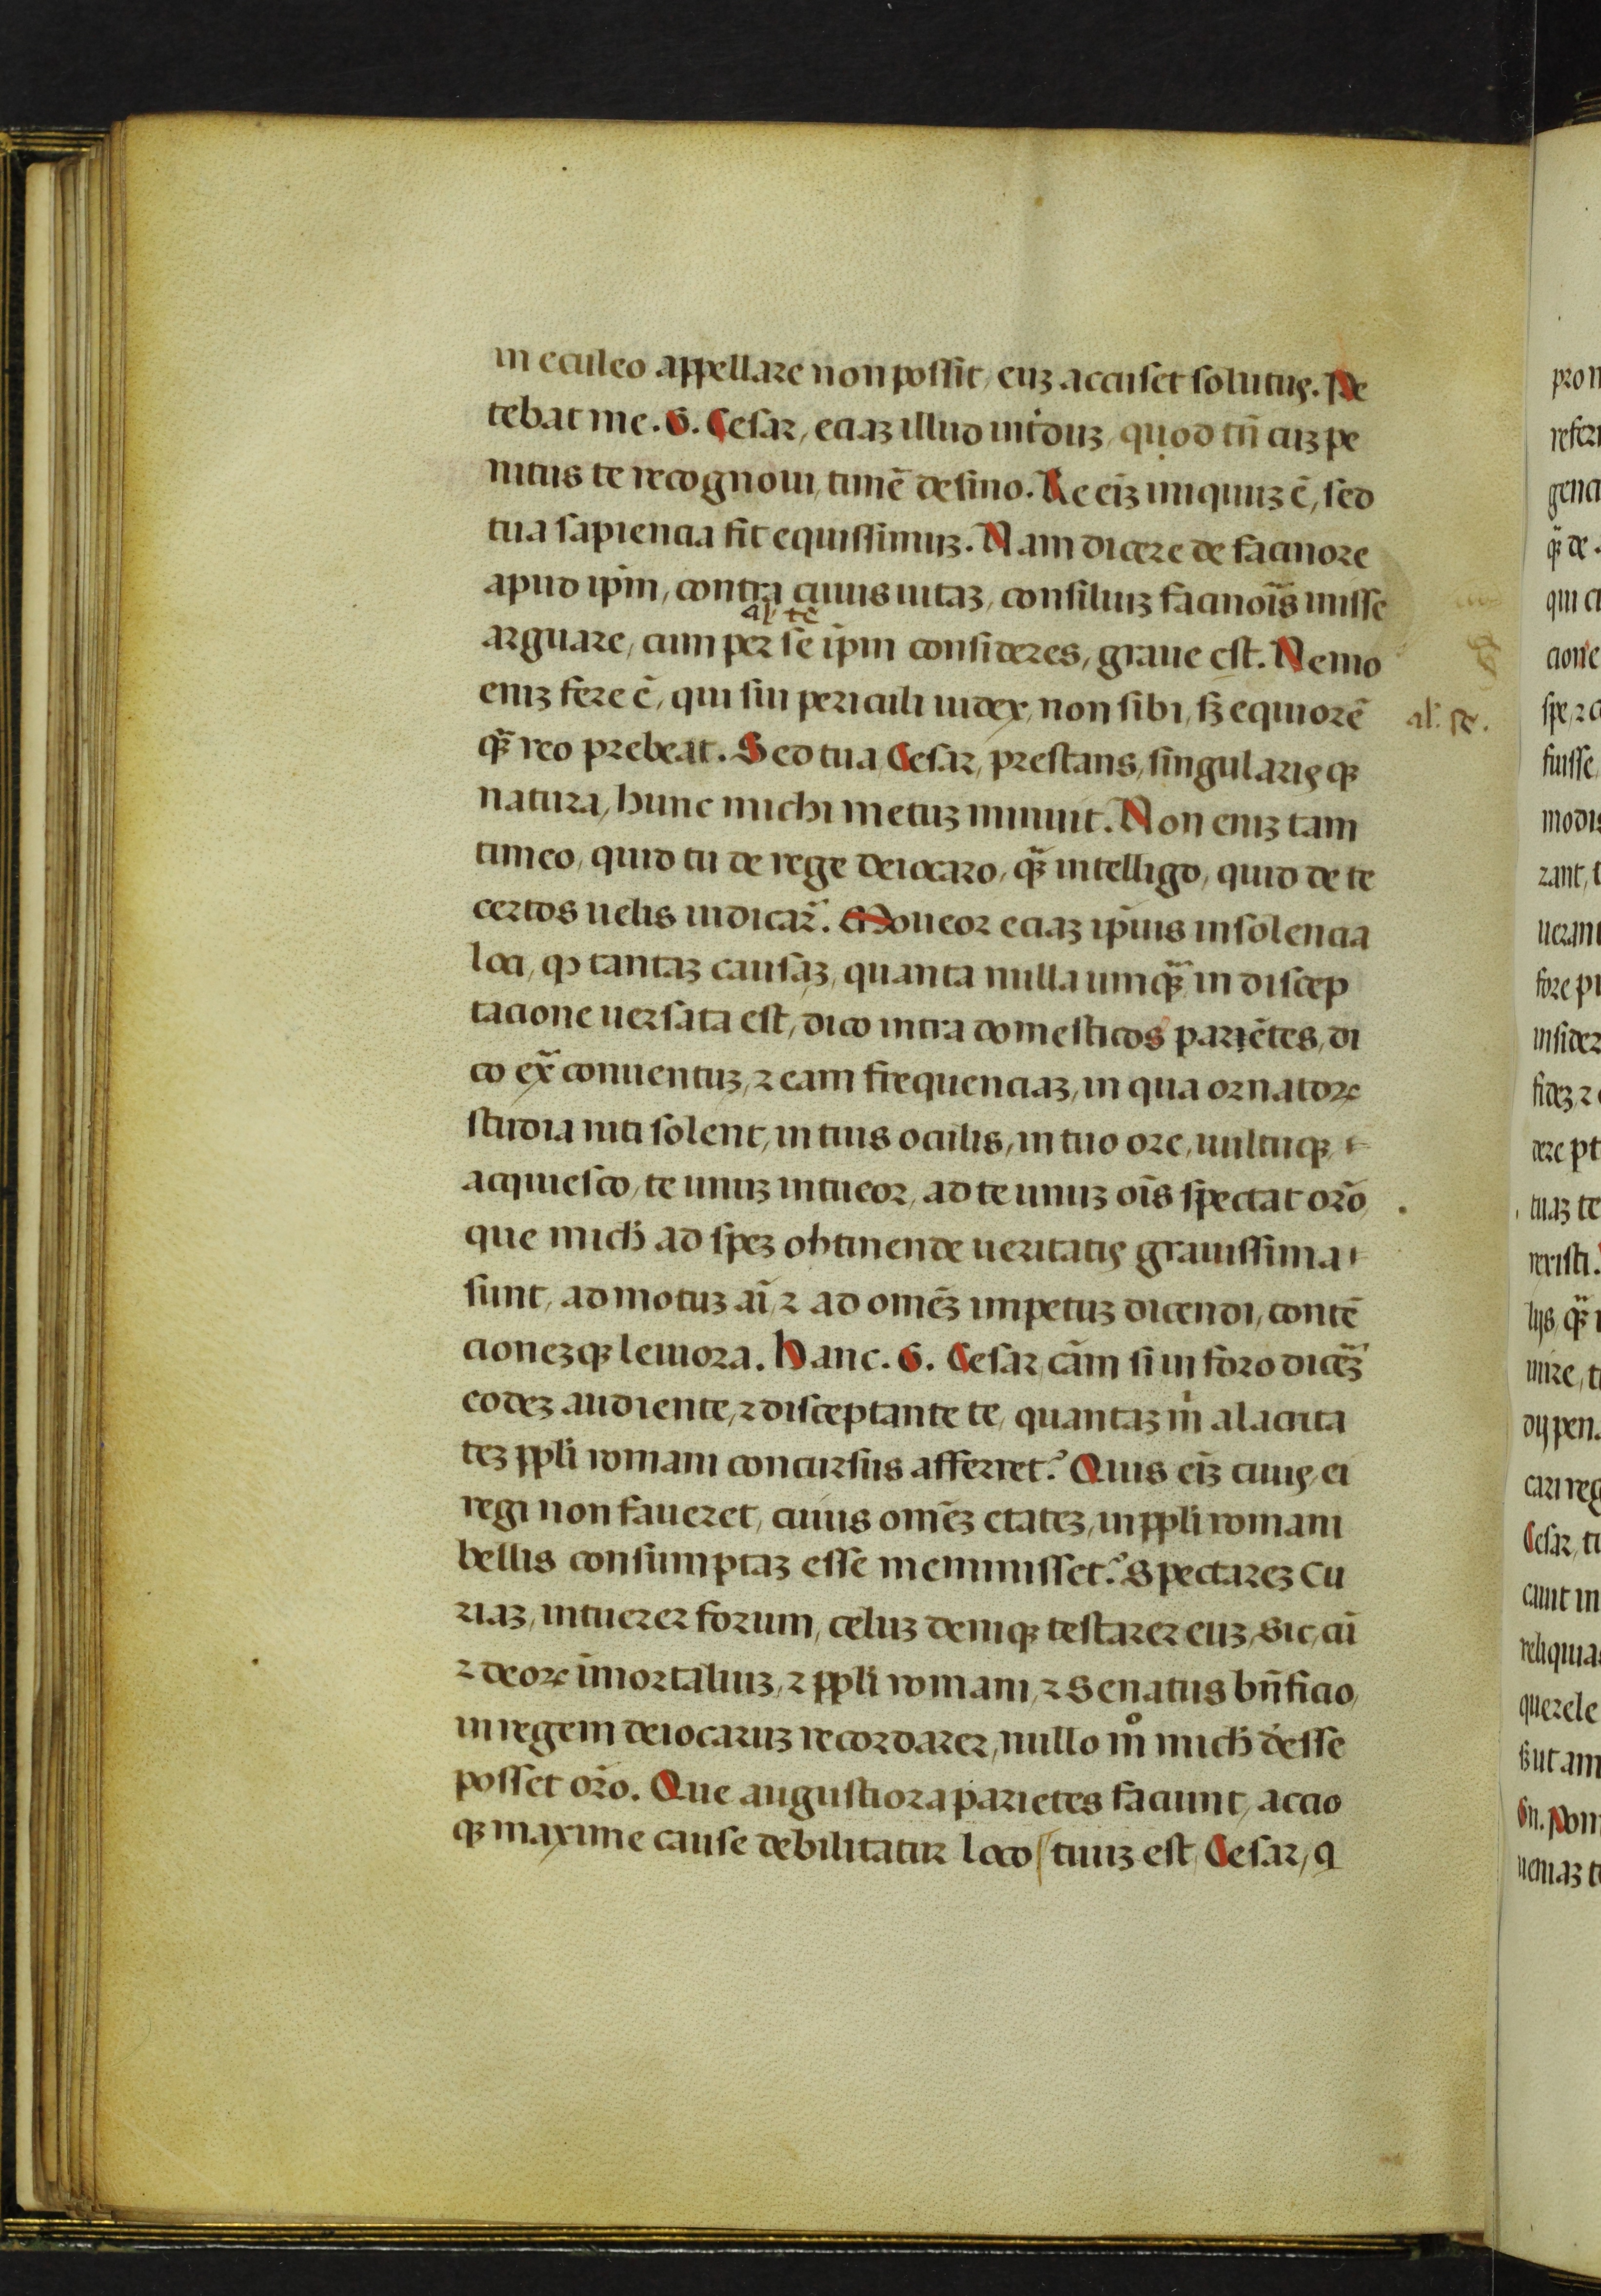 in eculeo appellare non possit, euꝫ accuset solutus. Pe
tebat me. G. Cesar, eciaꝫ illud int̾duꝫ, quod tn̄ cuꝫ pe
nitus te recognoui, timē desino. Re eīꝫ iniquuꝫ ē, sed
tua sapiencia fit equissimuꝫ. Nam dicere de facinore
apud ip̄m, contra cuius uitaꝫ, consiliuꝫ facinoīs inisse
al' tē
arguare, cum per se ip̄m consideres, graue est. Nemo
eniꝫ fere ē, qui sui periculi iudex, non sibi, sꝫ equiorē
al'. se.
qꝫ̄ reo prebeat. Sed tua, Cesar, prestans, singularisqꝫ
natura, hunc michi metuꝫ minuit. Non eniꝫ tam
timeo, quid tu de rege deiocaro, qꝫ̄ intelligo, quid de te
certos uelis iudicar̄. Moueor eciaꝫ ip̄ius insolencia
loci, ꝙ tantaꝫ causaꝫ, quanta nulla umqꝫ̄ in discep
tacione uersata est, dico intra domesticos parietes, di
co ex̄ conuentuꝫ, ⁊ eam frequenciaꝫ, in qua oznatoꝝ
studia niti solent, in tuis oculis, in tuo ore, uultuqꝫ
acquiesco, te unuꝫ intueor, ad te unuꝫ oīs spectat or̄o,
que mich̄ ad speꝫ obtinende ueritatis grauissima
sunt, ad motuꝫ aī, ⁊ ad omēꝫ impetuꝫ dicendi, contē
cioneꝫqꝫ leuiora. Hanc. G. Cesar, cām si in foro diceꝫ̄
eodeꝫ audiente, ⁊ disceptante te, quantaꝫ m̄ alacrita
teꝫ ppl̄i romani concursus afferret? Quis eīꝫ ciuis, ei
regi non faueret, cuius omēꝫ etateꝫ, in ppl̄i romani
bellis consumptaꝫ esse meminisset? Spectareꝫ Cu
riaꝫ, intuerer forum, celuꝫ deniqꝫ testarer euꝫ, Sic, cū
⁊ deoꝝ īmortaliuꝫ, ⁊ ppl̄i romani, ⁊ Senatus bn̄ficio,
in regem deiocaruꝫ recordarer, nullo mº mich̄ deesse
posset or̄o. Que angustiora parietes faciunt, accio
qꝫ maxime cause debilitatur loco, tuuꝫ est, Cesar, q